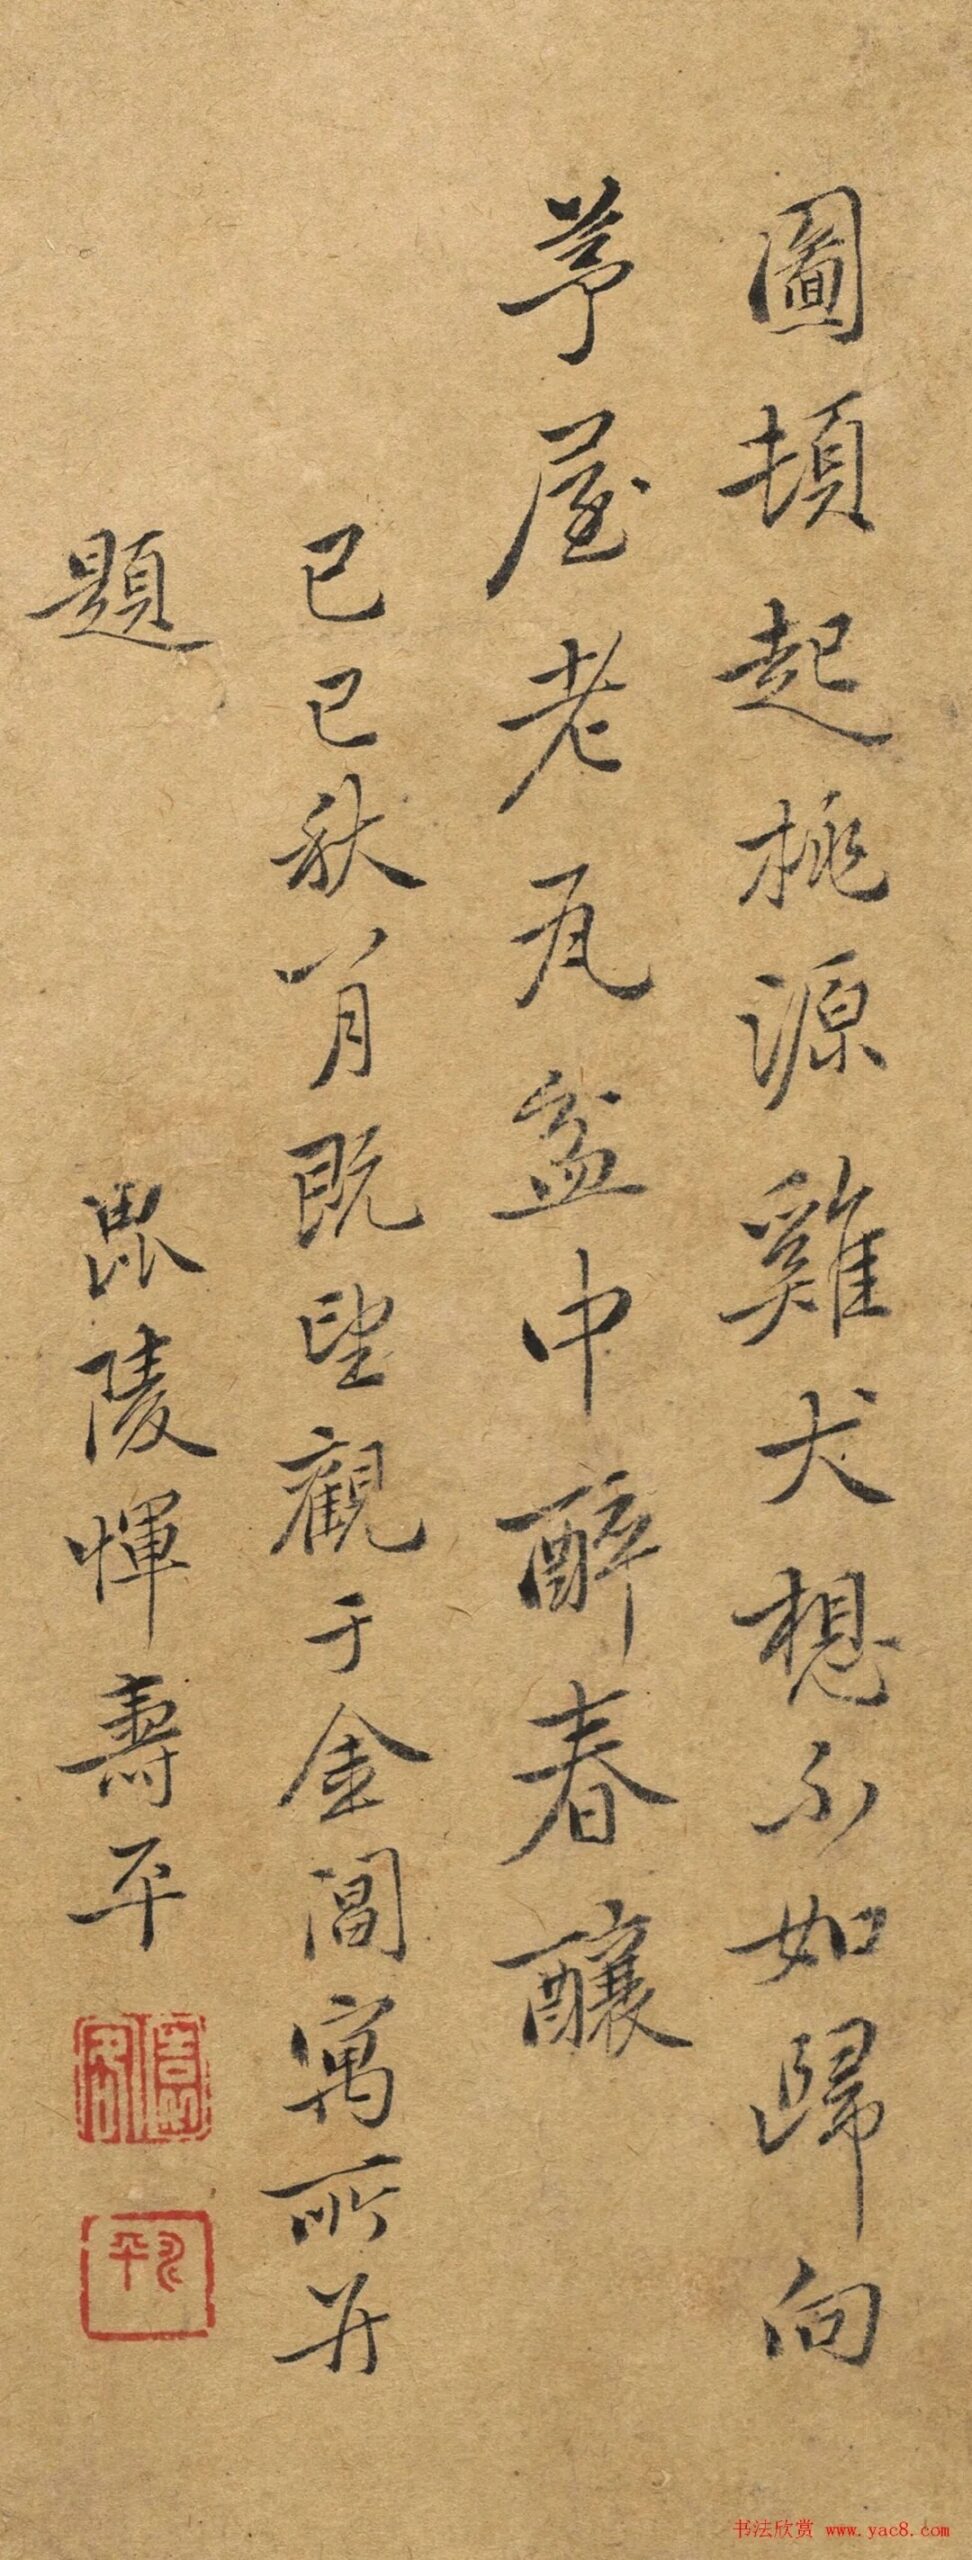 圖頓起桃源雞犬想不如歸向
茅屋老瓦盆中醉春釀
己巳秋八月既望觀于金閶寓所并
題
毘陵惲壽平
书法欣赏 www.yac8.com